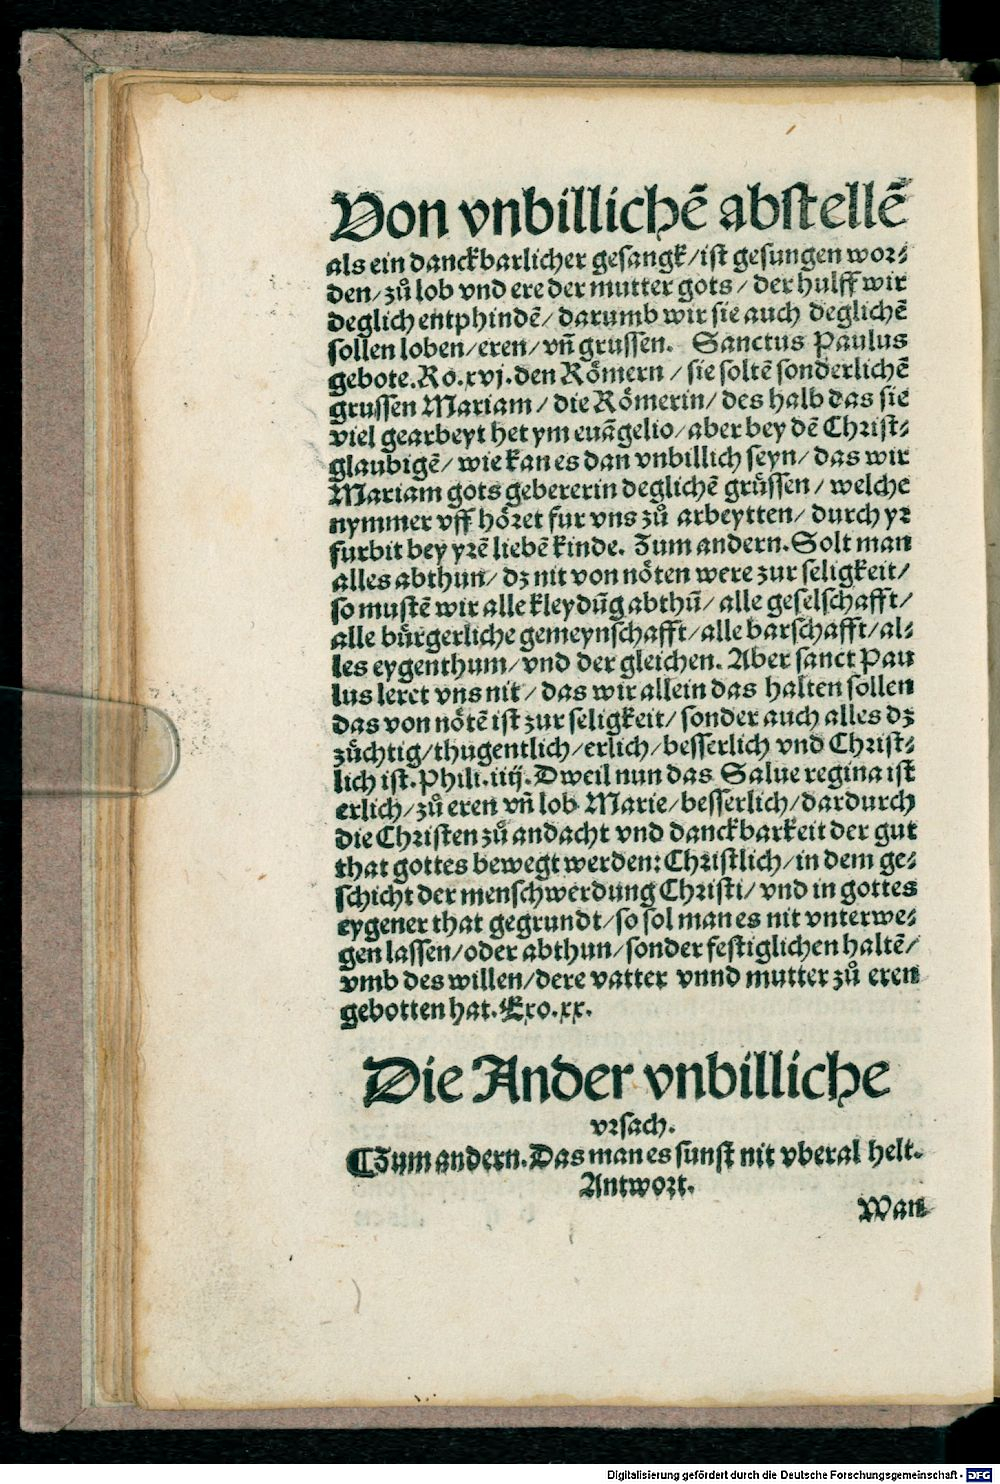 Von vnbillichẽ abstellẽ
als ein danckbarlicher gesangk/ist gesungen wor⸗
den/zů lob vnd ere der mutter gots/der hulff wir
deglich entphindẽ/darumb wir sie auch deglichẽ
sollen loben/eren/vñ grussen. Sanctus Paulus
gebote.Ro.xvj.den Rŏmern/sie soltẽ sonderlichẽ
grussen Mariam/die Rŏmerin/des halb das sie
viel gearbeyt het ym euãgelio/aber bey dẽ Christ⸗
glaubigẽ/wie kan es dan vnbillich seyn/das wir
Mariam gots gebererin deglichẽ grůssen/welche
nymmer vff hŏret fur vns zů arbeytten/durch yr
furbit bey yrẽ liebẽ kinde. Zum andern. Solt man
alles abthun/dz nit von nŏten were zur seligkeit/
so mustẽ wir alle kleydũg abthũ/alle geselschafft/
alle bůrgerliche gemeynschafft/alle barschafft/al⸗
les eygenthum/vnd der gleichen. Aber sanct Pau
lus leret vns nit/das wir allein das halten sollen
das von nŏtẽ ist zur seligkeit/sonder auch alles dz
zůchtig/thugentlich/erlich/besserlich vnd Christ⸗
lich ist.Phili.iiij.Dweil nun das Salue regina ist
erlich/zů eren vñ lob Marie/besserlich/dardurch
die Christen zů andacht vnd danckbarkeit der gut
that gottes bewegt werden:Christlich/in dem ge⸗
schicht der menschwerdung Christi/vnd in gottes
eygener that gegrundt/so sol man es nit vnterwe⸗
gen lassen/oder abthun/sonder festiglichen haltẽ/
vmb des willen/dere vatter vnnd mutter zů eren
gebotten hat.Exo.xx.
Die Ander vnbilliche
vrsach.
¶Zum andern.Das man es sunst nit vberal helt.
Antwort.
Wan
Digitalisierung gefördert durch die Deutsche Forschungsgemeinschaft - DFG